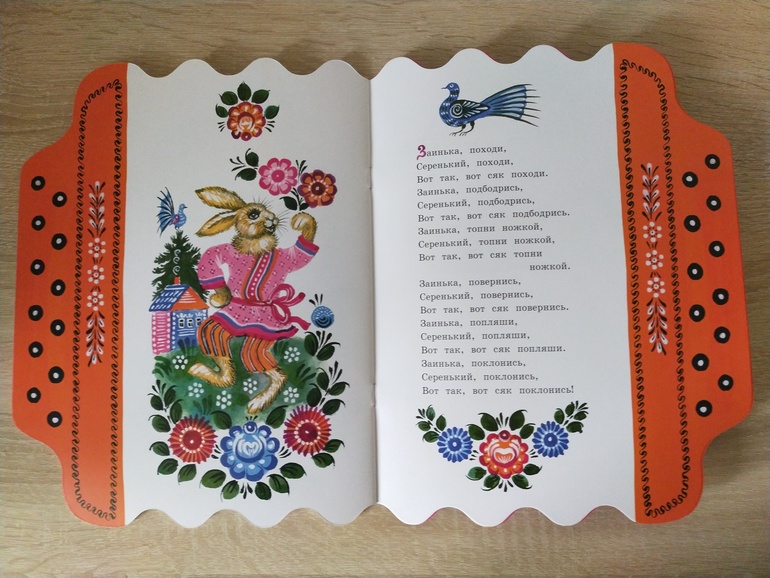 Заинька, походи,
Серенький, походи,
Вот так, вот сяк походи.
Заинька, подбодрись,
Серенький, подбодрись,
Вот так, вот сяк подбодрись.
Заинька, топни ножкой,
Серенький, топни ножкой,
Вот так, вот сяк топни
ножкой.
Заинька, повернись,
Серенький, повернись,
Вот так, вот сяк повернись.
Заинька, попляши,
Серенький, попляши,
Вот так, вот сяк попляши.
Заинька, поклонись,
Серенький, поклонись,
Вот так, вот сяк поклонись!